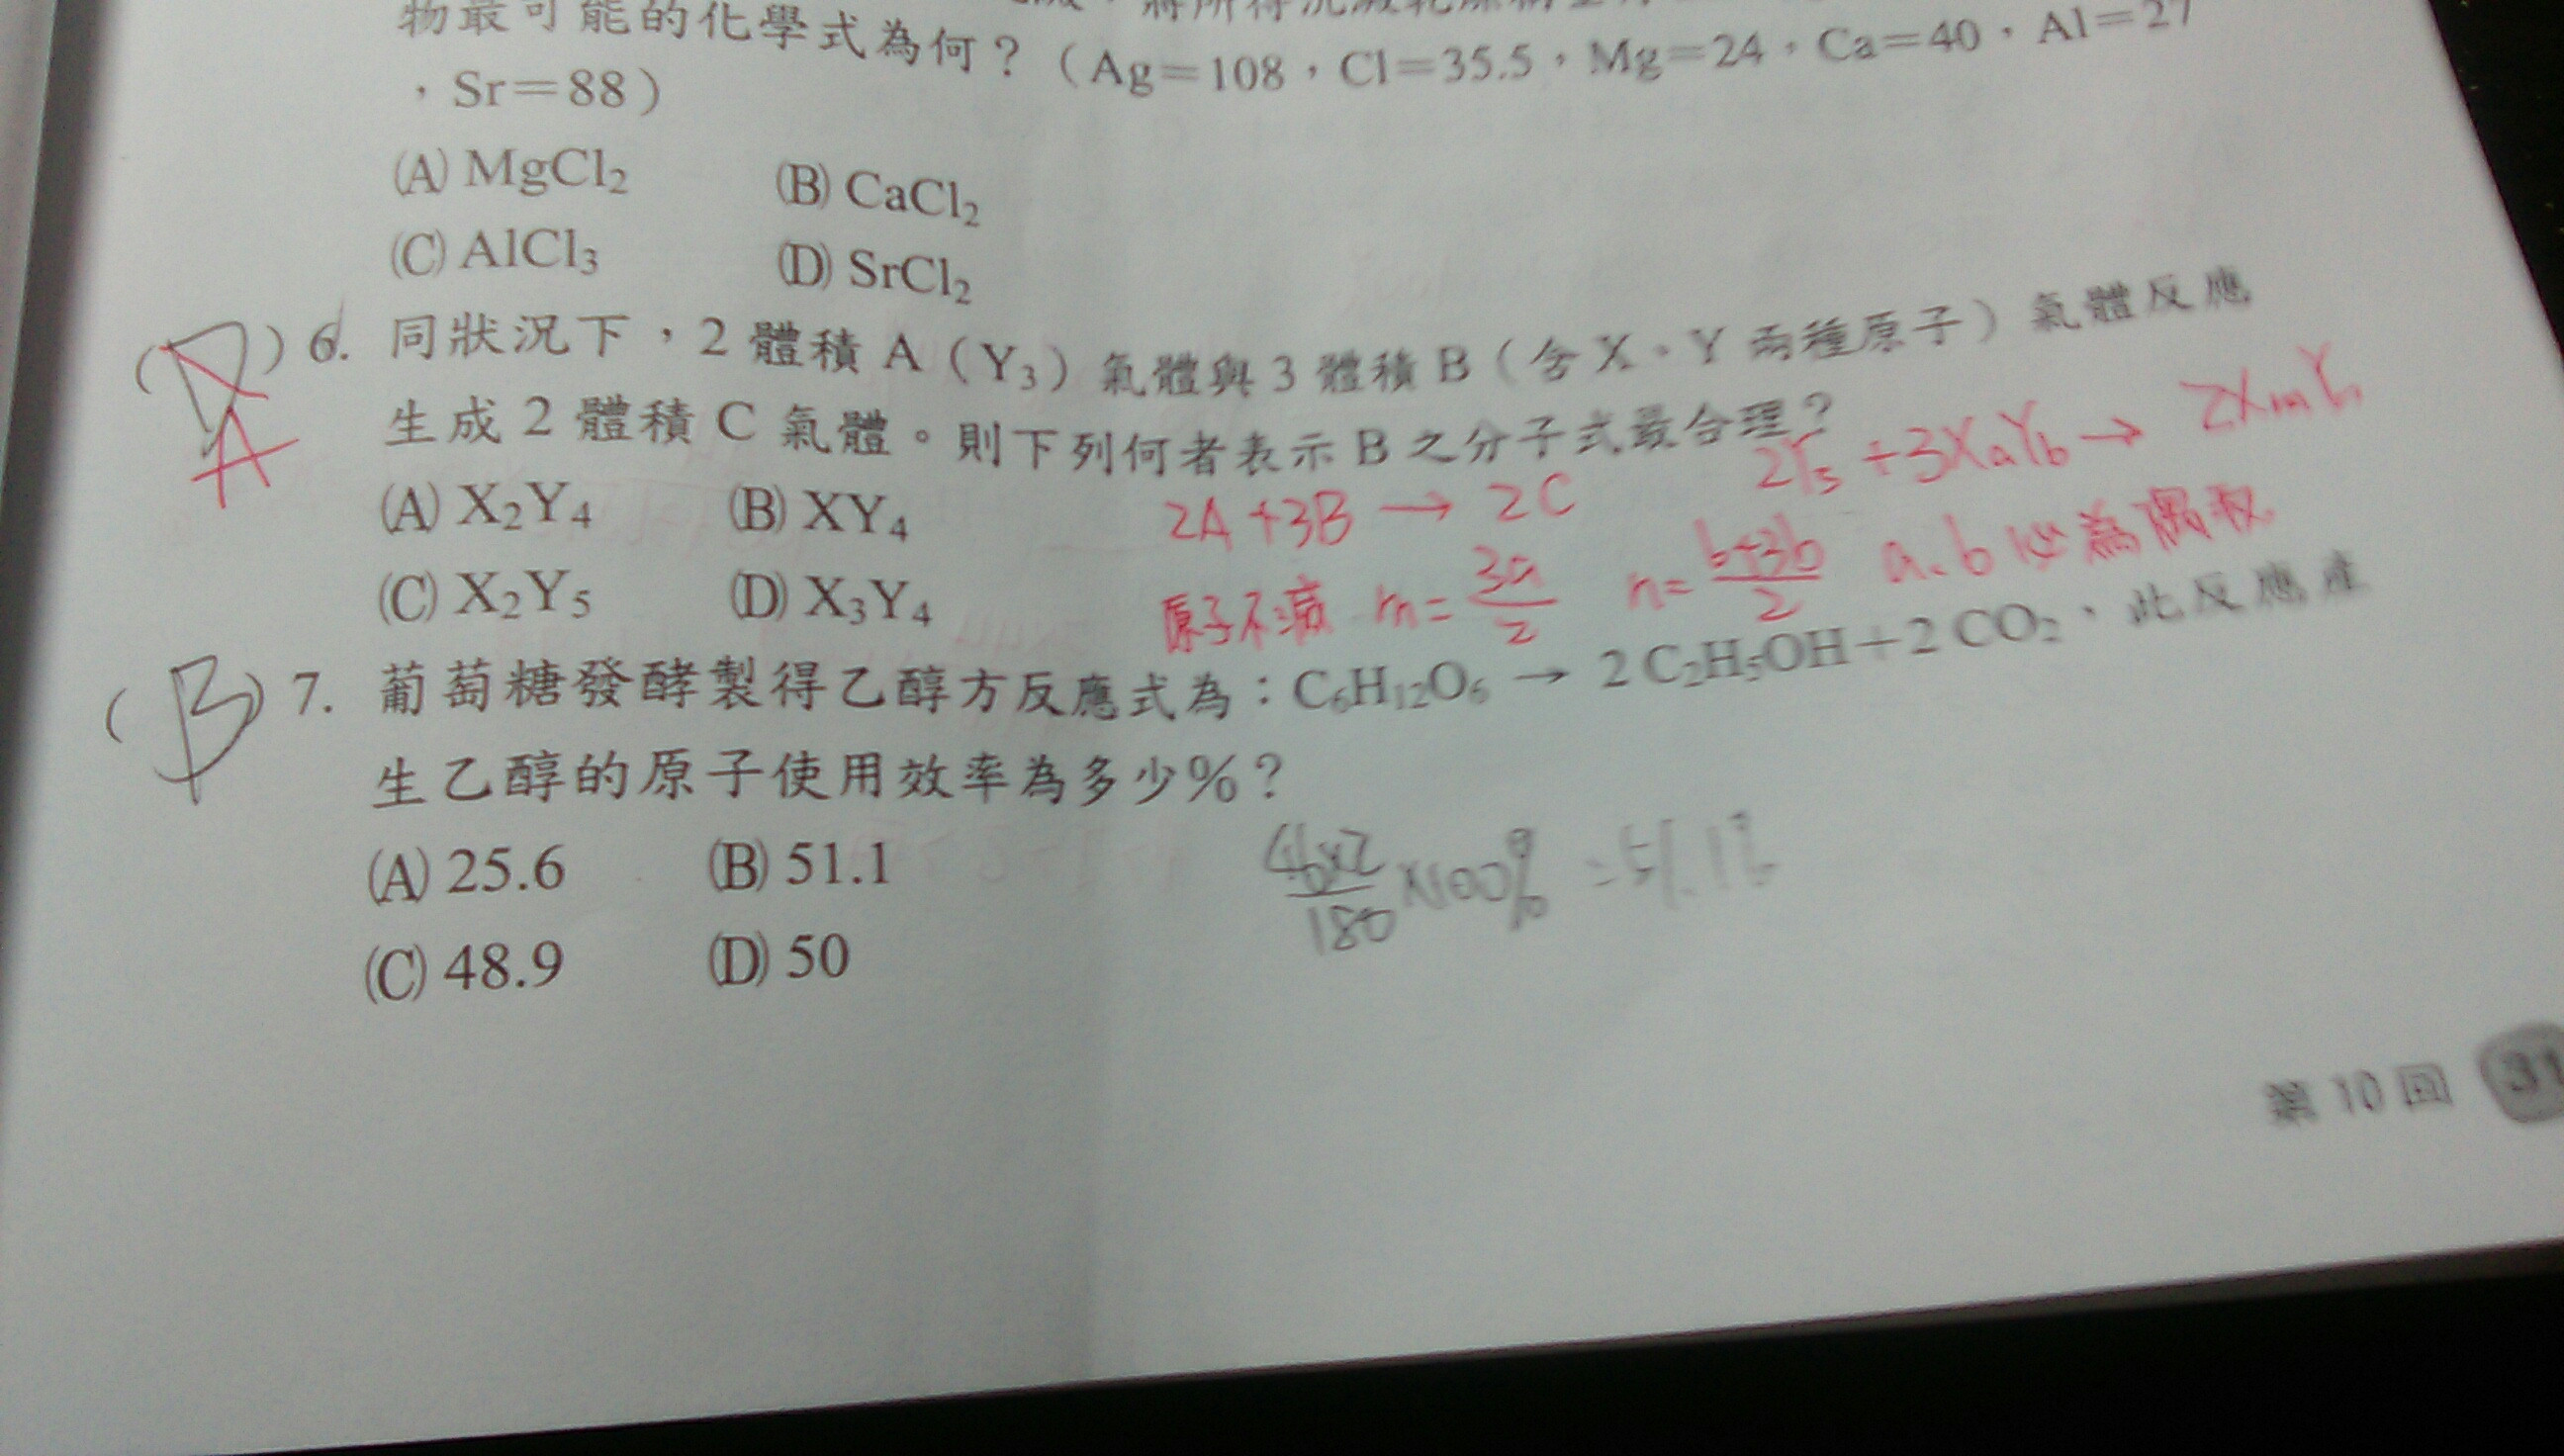 物最可能的化學式為何？（Ag＝108，Cl＝35.5，Mg＝24，Ca＝40，Al＝27
，Sr＝88）
(A) MgCl₂ (B) CaCl₂
(C) AlCl₃ (D) SrCl₂
( D A ) 6. 同狀況下，2 體積 A（Y₃）氣體與 3 體積 B（含 X、Y 兩種原子）氣體反應
生成 2 體積 C 氣體。則下列何者表示 B 之分子式最合理？
2Y₃ + 3XaYb → 2XmYn
(A) X₂Y₄ (B) XY₄ 2A + 3B → 2C
(C) X₂Y₅ (D) X₃Y₄ 原子不滅 m = 3a/2 n = 6+3b/2 a、b 必為偶數
( B ) 7. 葡萄糖發酵製得乙醇方反應式為：C₆H₁₂O₆ → 2 C₂H₅OH＋2 CO₂，此反應產
生乙醇的原子使用效率為多少%？
(A) 25.6 (B) 51.1 46×2/180 ×100% = 51.1%
(C) 48.9 (D) 50
第 10 回 31